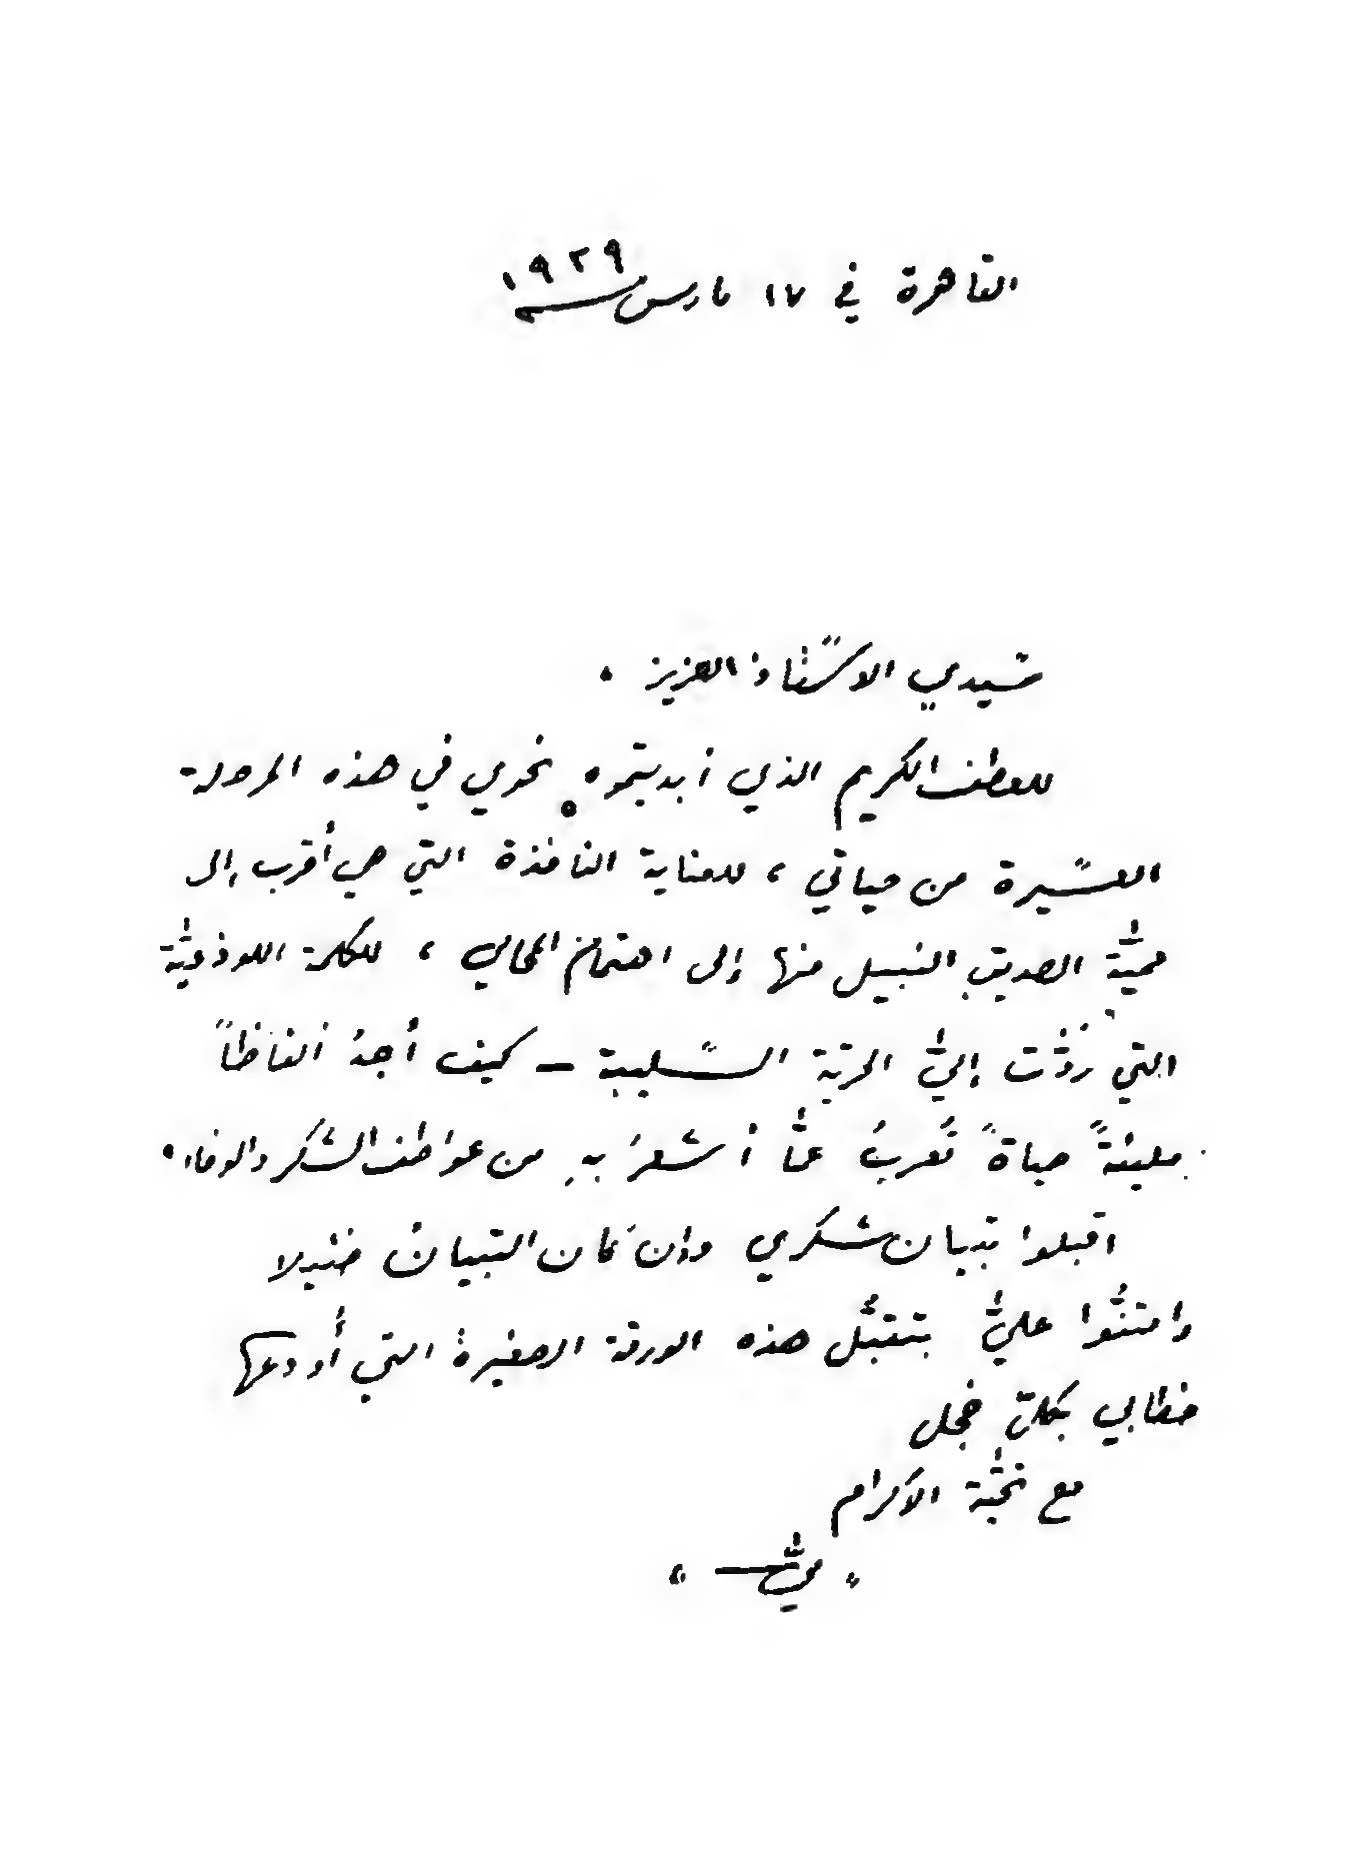 القاهرة في ١٧ مارس سنة ١٩٢٩
سيدي الاستاذ العزيز .
للعطف الكريم الذي أبديتموه نحوي في هذه المرحلة
العسيرة من حياتي ، للعناية النافذة التي هي أقرب إلى
حميّة الصديق النبيل منها إلى اهتمام المحامي ، للكلمة اللوذعيّة
التي رَدَّت إليَّ الحرّية السليبة – كيف أجدُ ألفاظاً
مليئةً حياةً تُعربُ عمّا أشعرُ بهِ من عواطف الشكر والوفاء .
اقبلوا تبيان شكري وإن كان التبيانُ ضئيلا
وامتنُّوا عليَّ بتقبُّل هذه الورقة الصغيرة التي أُودعها
خطابي بكلّ خجل
مع تحيّة الاكرام
« ميّ »